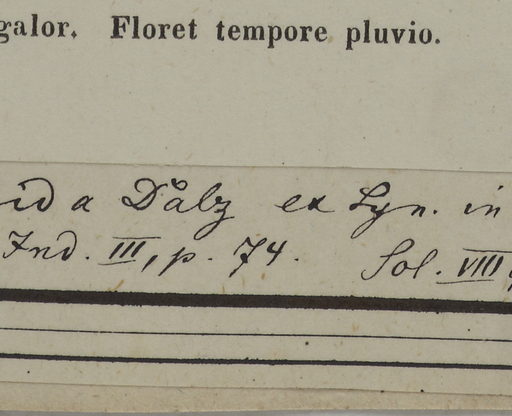 galor. Floret tempore pluvio.
id a Dalz ex Syn. in
Ind. III, p. 74. Sol. VIII